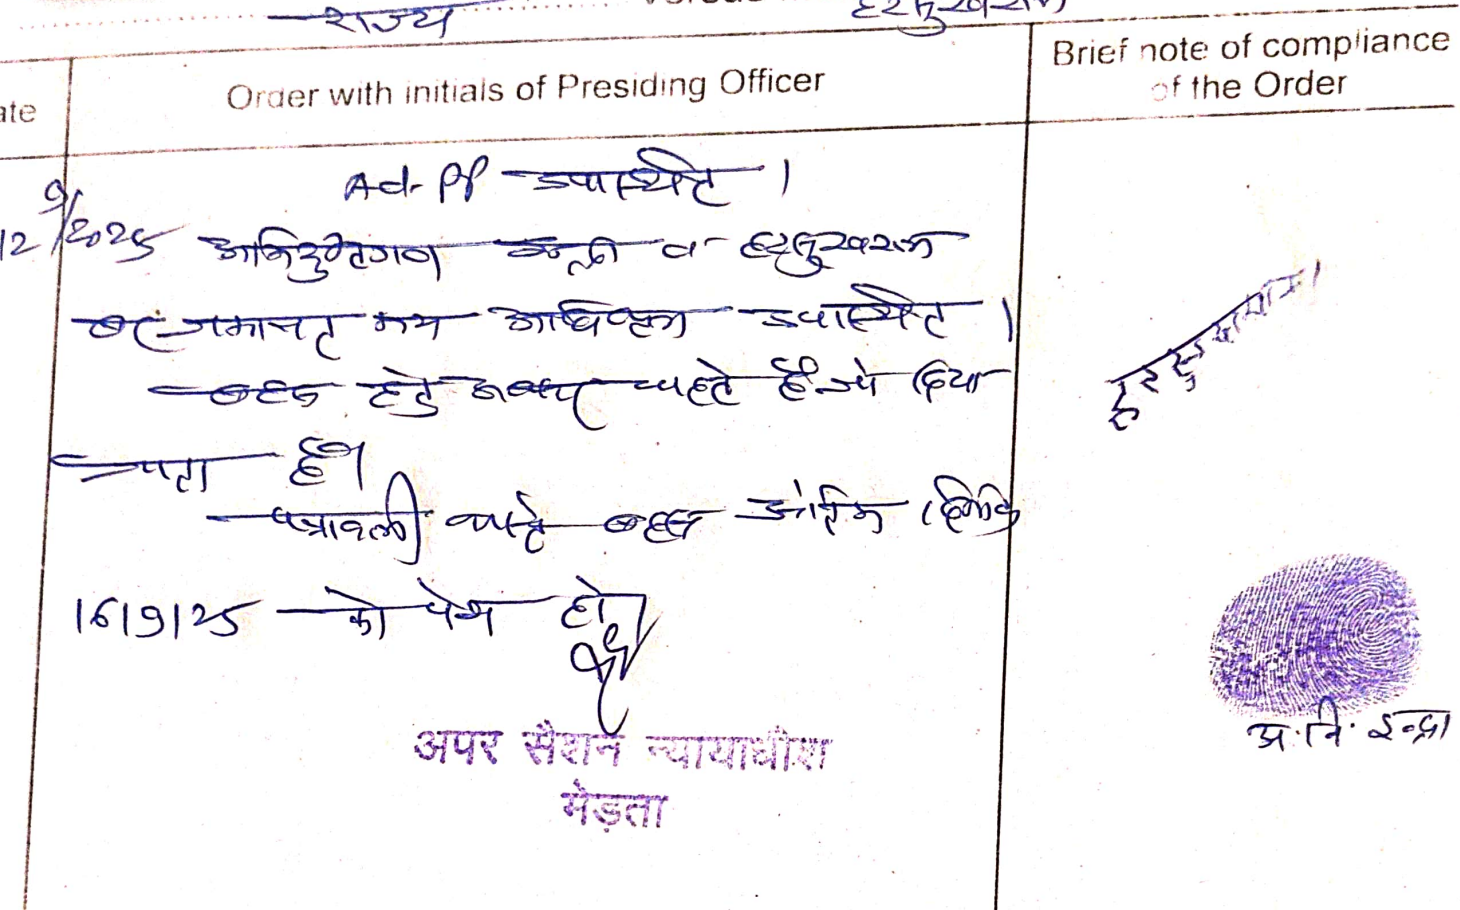 राज्य
हरसुखराम
Order with initials of Presiding Officer
Brief note of compliance
of the Order
ate
Ad. PP उपस्थित ।
12/9/2025 अभियुक्तगण व हरसुखराम
जमानत मय अधिवक्ता उपस्थित ।
बहस हेतु अवसर चाहते हैं जो दिया
जाता है।
पत्रावली वास्ते बहस अंतिम दिनांक
16/9/25 को पेश हो।
अपर सैशन न्यायाधीश
मेड़ता
हरसुखराम।
अ.नि. इन्द्रा